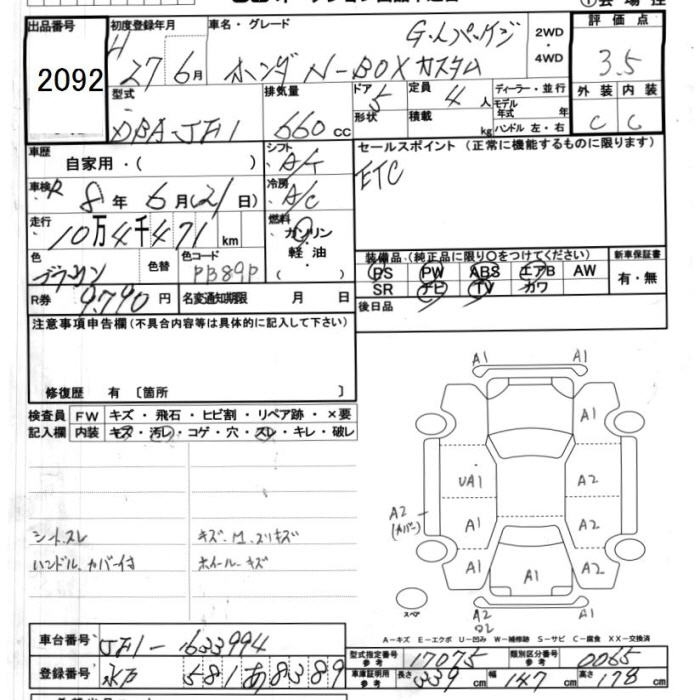 出品番号
2092
初度登録年月
H 27 6月
車名・グレード
G・Lパッケージ
ホンダ N-BOXカスタム
2WD
・
4WD
評価点
3.5
外装 内装
C C
型式
DBA-JF1
排気量
660 cc
ドア
5
形状
定員
4 人
積載
kg
ディーラー・並行
モデル年式 年
ハンドル 左・右
車歴
自家用・( )
シフト
A/T
セールスポイント (正常に機能するものに限ります)
ETC
車検 R 8年 6月(21日)
冷房
A/C
走行
10万4千471 km
燃料
ガソリン
軽油
( )
色
ブラウン
色替
色コード
PB89P
装備品(純正品に限り○をつけてください)
PS PW ABS エアB AW
SR ナビ TV カワ
新車保証書
有・無
R券 9,790 円
名変通知期限 月 日
後日品
注意事項申告欄(不具合内容等は具体的に記入して下さい)
修復歴 有 〔箇所 〕
検査員
記入欄
FW キズ・飛石・ヒビ割・リペア跡・×要
内装 キズ・汚レ・コゲ・穴・スレ・キレ・破レ
シートスレ
キズ、M、スリキズ
ハンドル、カバー付
ホイールキズ
A1 A1
A1
UA1 A2
A2
(カバー)
A1 A2
A1 A1 A2
スペア
A2 A1
A-キズ E-エクボ U-凹み W-補修跡 S-サビ C-腐食 XX-交換済
車台番号 JF1-1633994
登録番号 水戸 581 あ 8389
型式指定番号
参考
17075
類別区分番号
参考
0065
車庫証明用
参考
長さ 339 cm 幅 147 cm 高さ 178 cm